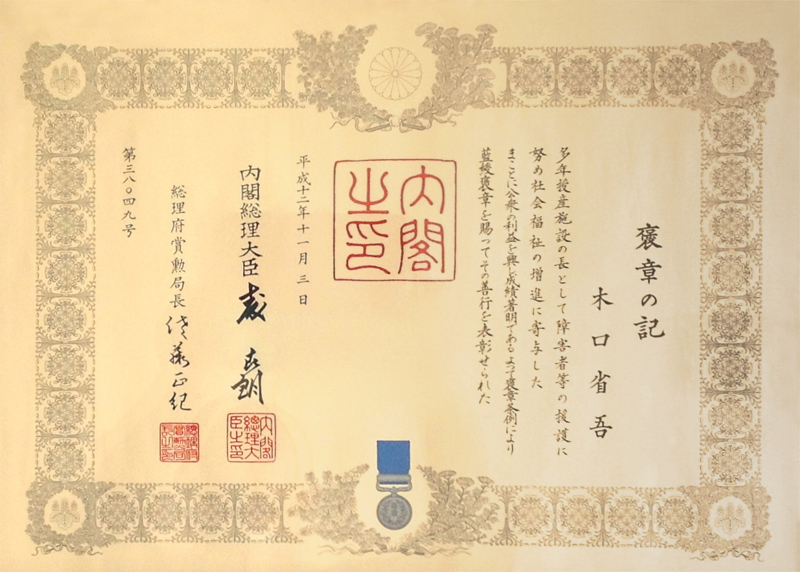 褒章の記
木口省吾
多年授産施設の長として障害者等の援護に
努め社会福祉の増進に寄与した
まことに公衆の利益を興し成績著明であるよつて褒章条例により
藍綬褒章を賜つてその善行を表彰せられた
内閣
之印
平成十二年十一月三日
内閣総理大臣 森 喜朗
内閣
総理大
臣之印
総理府賞勲局長 佐藤正紀
第三八〇四九号